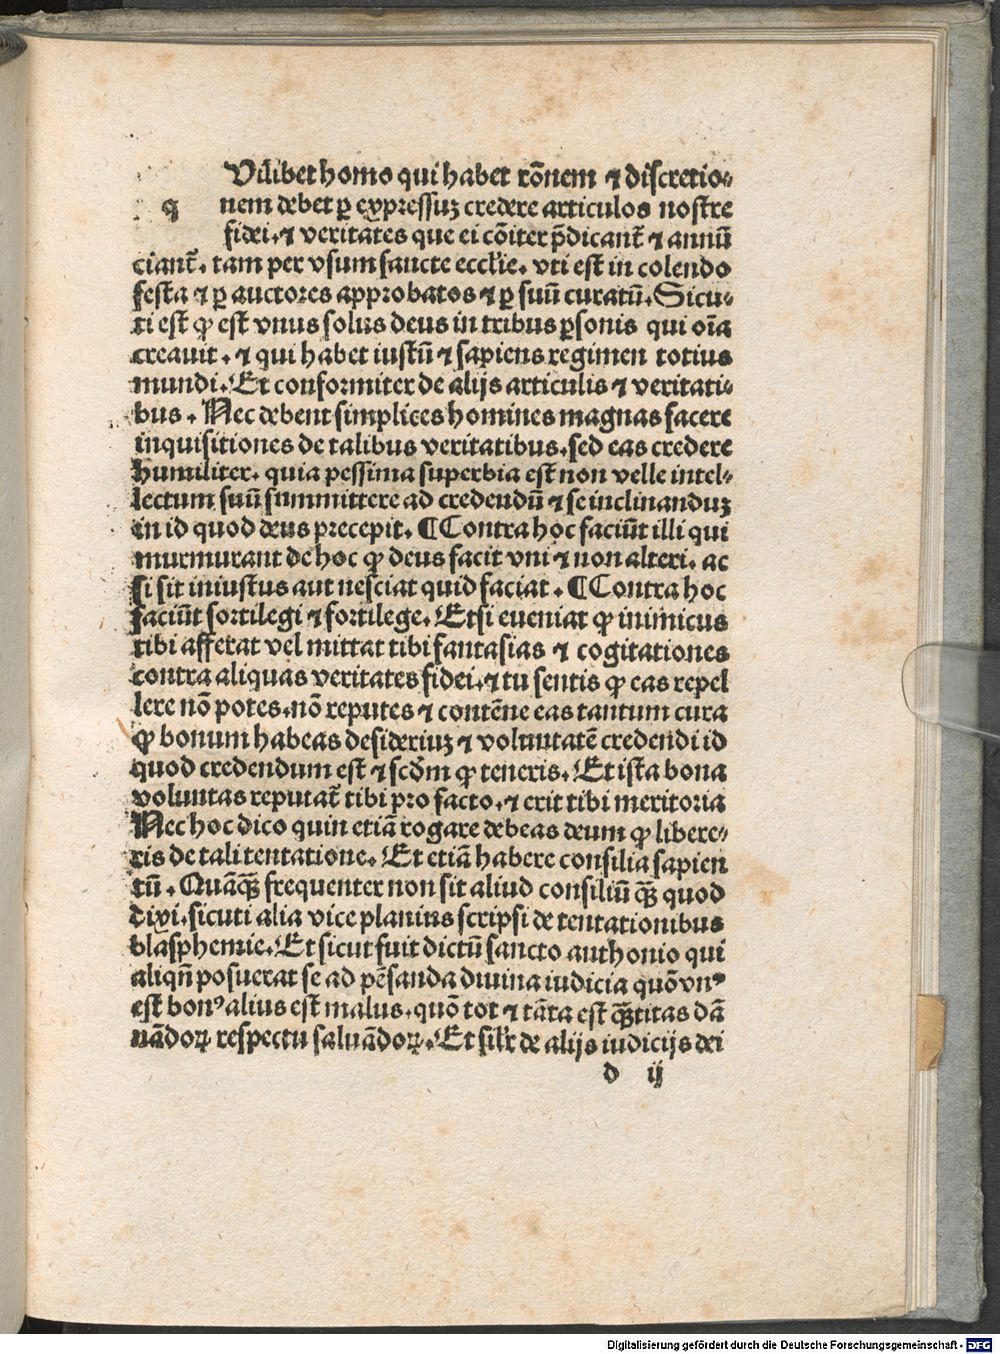 Vilibet homo qui habet rōnem ⁊ discretio⸗
q nem debet ꝑ expressuꝫ credere articulos nostre
fidei.⁊ veritates que ei cōiter p̄dicant᷑ ⁊ annū
ciant᷑. tam per vsum sancte eccl'ie. vti est in colendo
festa ⁊ ꝑ auctores approbatos ⁊ ꝑ suū curatū. Sicu⸗
ti est ꝙ est vnus solus deus in tribus ꝑsonis qui oīa
creauit. ⁊ qui habet iustū ⁊ sapiens regimen totius
mundi. Et conformiter de alijs articulis ⁊ veritati⸗
bus. Nec debent simplices homines magnas facere
inquisitiones de talibus veritatibus. sed eas credere
humiliter. quia pessima superbia est non velle intel⸗
lectum suū summittere ad credendū ⁊ se inclinanduꝫ
in id quod deus precepit. ¶ Contra hoc faciūt illi qui
murmurant de hoc ꝙ deus facit vni ⁊ non alteri. ac
si sit iniustus aut nesciat quid faciat. ¶ Contra hoc
faciūt sortilegi ⁊ sortilege. Etsi eueniat ꝙ inimicus
tibi afferat vel mittat tibi fantasias ⁊ cogitationes
contra aliquas veritates fidei.⁊ tu sentis ꝙ eas repel
lere nō potes. nō reputes ⁊ contēne eas tantum cura
ꝙ bonum habeas desideriuꝫ ⁊ voluntatē credendi id
quod credendum est ⁊ scd̄m ꝙ teneris. Et ista bona
voluntas reputat᷑ tibi pro facto.⁊ erit tibi meritoria
Nec hoc dico quin etiā rogare debeas deum ꝙ libere⸗
ris de tali tentatione. Et etiā habere consilia sapien
tū. Quāqꝫ̄ frequenter non sit aliud consiliū qꝫ̄ quod
dixi. sicuti alia vice planius scripsi de tentationibus
blasphemie. Et sicut fuit dictū sancto anthonio qui
aliqn̄ posuerat se ad pēsanda diuina iudicia quō vnꝰ
est bonꝰ alius est malus. quō tot ⁊ tāta est qꝫ̄titas dā
nādoꝝ respectu saluādoꝝ. Et sil'r de alijs iudicijs dei
d ij
Digitalisierung gefördert durch die Deutsche Forschungsgemeinschaft - DFG